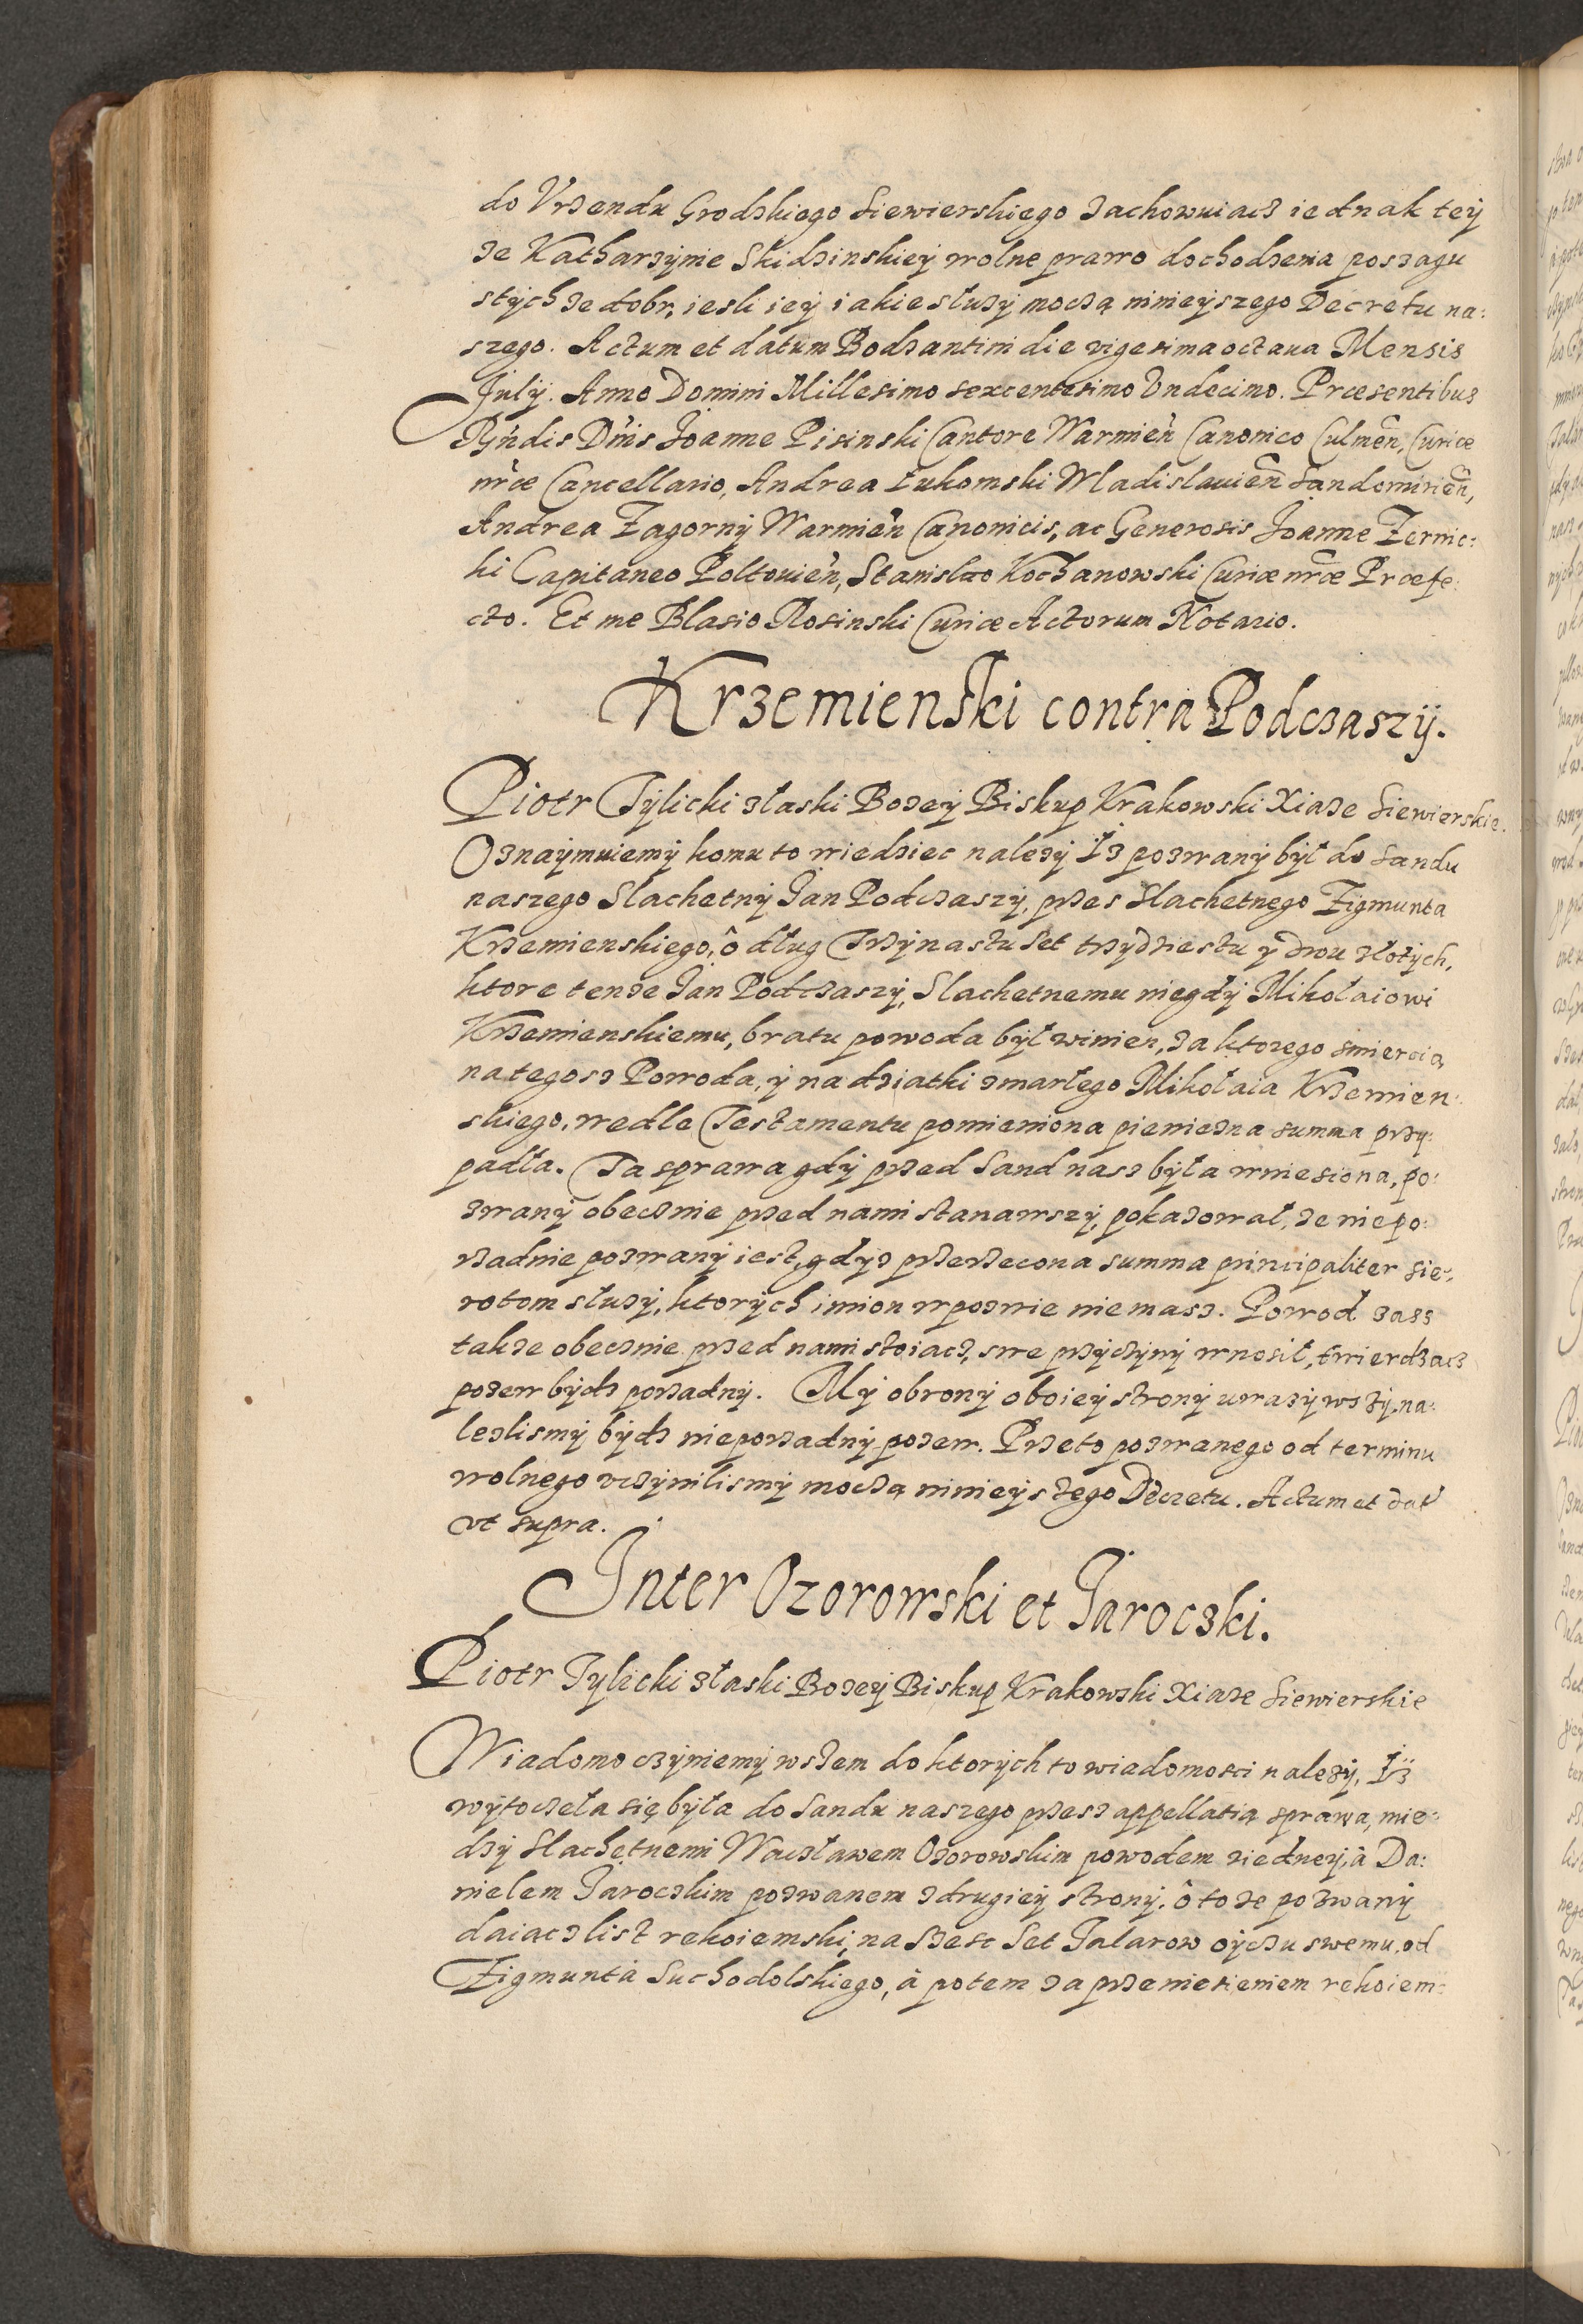 do Vrzendu Grodzkiego Siewierskiego zachowuiacz iednak tey
ze Katharzynie Skidzinskiey wolne prawo dochodzenia poszagu
stych ze dobr, iesli iey iakie służy moczą ninieyszego Decretu na:
szego. Actum et datum Bodzantini die vigesima octaua Mensis
July. Anno Domini Millesimo sexcentesimo Vndecimo. Præsentibus
Rṅdis Dṅis Joanne Pisinski Cantore Warmień Canonico Culmeñ, Curiæ
nr̃æ Cancellario, Andrea Łukomski Wladislauieñ Sandomirieñ,
Andrea Zagorny Warmień Canonicis, ac Generosis Joanne Zernic:
ki Capitaneo Poltouień, Stanislao Kochanowski Curiæ nr̃æ Præfe:
cto. Et me Blasio Rosinski Curiæ Actorum Notario.
Krzemienski contra Podczaszy.
Piotr Tylicki złaski Bozey Biskup Krakowski Xiaze Siewierskie.
Oznaymuiemy komu to wiedziec nalezy Iż pozwany był do Sandu
naszego Slachetny Jan Podczaszy, przes Slachetnego Zigmunta
Krzemienskiego, ô dług Trzynastu Set trzydziestu y dwu złotych,
ktore tenze Jan Podczaszy, Slachetnemu niegdy Mikołaiowi
Krzemienskiemu, bratu powoda był winien, za ktorego smiercią
na tegosz Powoda, y na dziatki zmarłego Mikołaia Krzemien:
skiego, wedle Testamentu pomieniona pieniezna summa przy:
padła. Ta sprawa gdy przed Sand nasz była wniesiona, po:
zwany obecznie przed nami stanawszy, pokazował, ze niepo:
rzadnie pozwany iest, gdyz przerzecona summa principaliter sie:
rotom służy, ktorych imion w pozwie nie masz. Powod zass
takze obecznie przed nami stoiacz, swe przyczyny wnosił, twierdzacz
pozew bydz porzadny. My obrony oboiey strony uwazywszy, na:
lezlismy bydz nieporzadny pozew. Przeto pozwanego od terminu
wolnego vczynilismy moczą ninieyszego Decretu. Actum et dat̃
vt supra.
Inter Ozorowski et Jaroczki.
Piotr Tylicki złaski Bozey Biskup Krakowski Xiaze Siewierskie
Wiadomo czyniemy wszem do ktorych to wiadomosci nalezy, Iż
wytoczeła się była do Sandu naszego przesz appellatią sprawa, mie:
dzy Slachetnemi Wacżławem Ozorowskim powodem ziedney, à Da:
nielem Jaroczkim pozwanem z drugiey strony. ô to ze pozwany
daiacz list rekoiemski, na szesc set Talarow oyczu swemu, od
Zigmunta Suchodolskiego, à potem za przeniesieniem rekoiem: